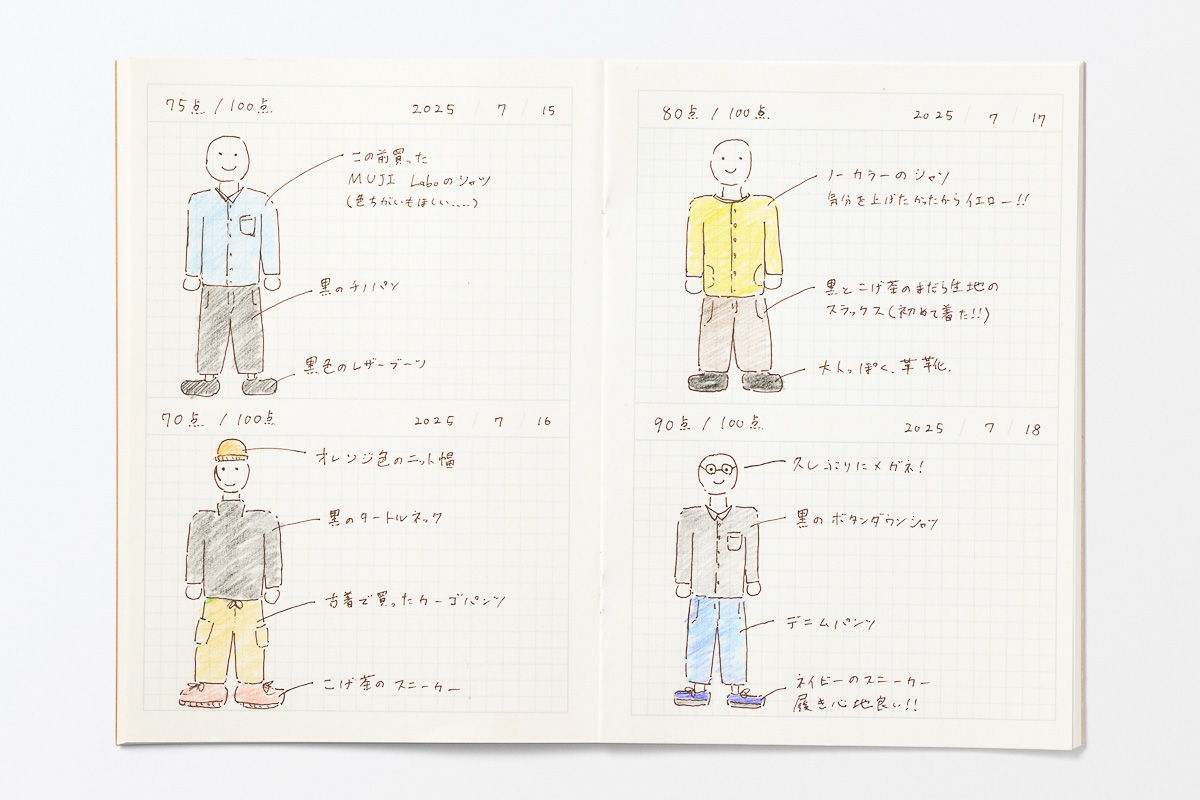 75点 / 100点 2025 / 7 / 15
この前買った
MUJI Laboのシャツ
(色ちがいもほしい.....)
黒のチノパン
黒色のレザーブーツ
70点 / 100点 2025 / 7 / 16
オレンジ色のニット帽
黒のタートルネック
古着で買ったカーゴパンツ
こげ茶のスニーカー
80点 / 100点 2025 / 7 / 17
ノーカラーのシャツ
気分を上げたかったからイエロー!!
黒とこげ茶のまだら生地の
スラックス(初めて着た!!)
大人っぽく、革靴。
90点 / 100点 2025 / 7 / 18
久しぶりにメガネ!
黒のボタンダウンシャツ
デニムパンツ
ネイビーのスニーカー
履き心地良い!!